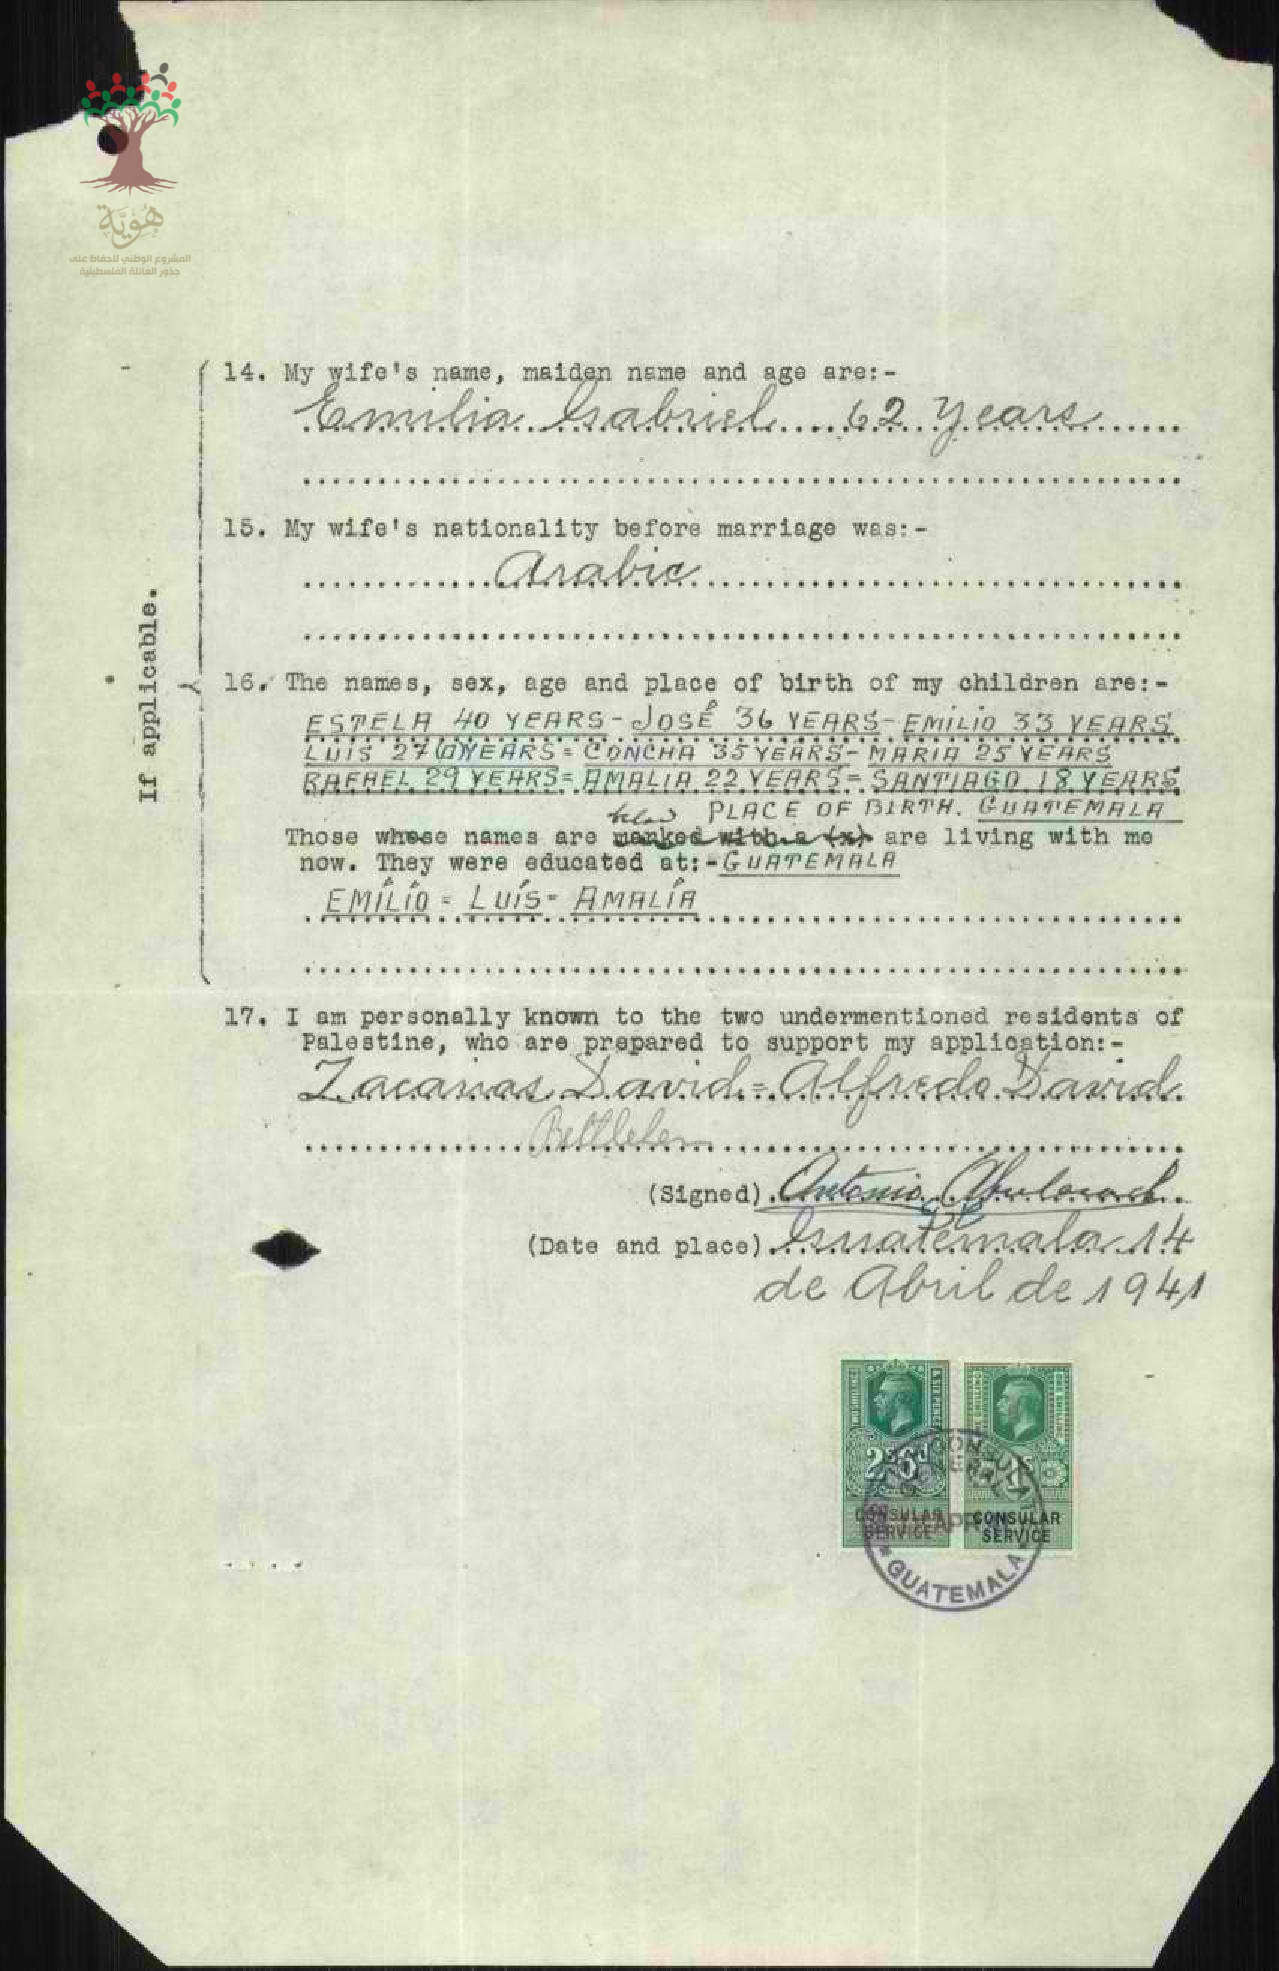 هُوِيَّة
المشروع الوطني للحفاظ على
جذور العائلة الفلسطينية
If applicable.
14. My wife's name, maiden name and age are:-
Emilia Gabriel 62 years
15. My wife's nationality before marriage was:-
Arabic
16. The names, sex, age and place of birth of my children are:-
ESTELA 40 YEARS - JOSÉ 36 YEARS - EMILIO 33 YEARS
LUIS 27 YEARS = CONCHA 35 YEARS - MARIA 25 YEARS
RAFAEL 29 YEARS = AMALIA 22 YEARS = SANTIAGO 18 YEARS
PLACE OF BIRTH. GUATEMALA
Those whose names are below marked with a (x) are living with me
now. They were educated at:- GUATEMALA
EMÍLÍO = LUÍS = AMALÍA
17. I am personally known to the two undermentioned residents of
Palestine, who are prepared to support my application:-
Zacarias David = Alfredo David
Bethlehem
(Signed) Antonio
(Date and place) Guatemala 14
de Abril de 1941
TWO SHILLINGS & SIX PENCE
ONE SHILLING
2s 6d
CONSULAR SERVICE
CONSULAR SERVICE
APR
GUATEMALA